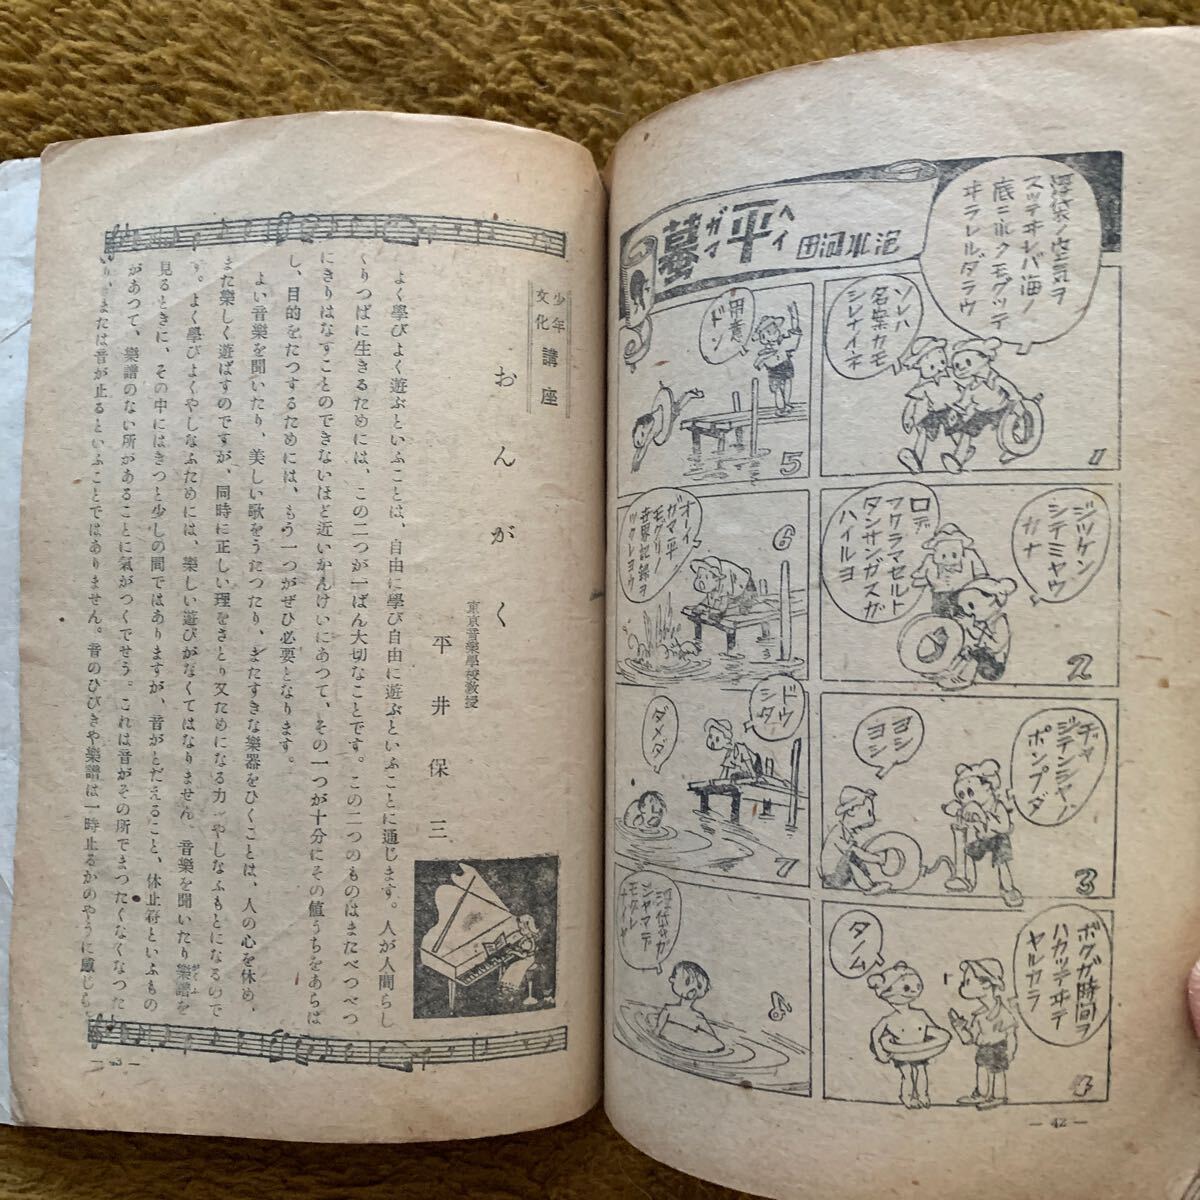 蟇平
ガマ
ヘイ
田河水泡
浮袋ノ空気ヲ
スッテヰレバ海ノ
底ニ永クモグッテ
ヰラレルダラウ
ソレハ
名案カモ
シレナイネ
1
ジツケン
シテミヤウ
カナ
ロデ
フクラマセルト
タンサンガスガ
ハイルヨ
2
ヂャ
ジテンシャノ
ポンプダ
ヨシ
ヨシ
3
ボクガ時間ヲ
ハカッテヰテ
ヤルカラ
タノム
4
用意
ドン
5
オーイ
ガマ平
モグリノ
世界記録ヲ
ツクレヨウ
6
ドウ
シタ
ダメダ
7
浮袋ガ
ジャマデ
モグレ
ナイ
8
— 42 —
少年
文化
講座
おんがく
東京音樂學校教授
平井保三
よく學びよく遊ぶといふことは、自由に學び自由に遊ぶといふことに通じます。人が人間らし
くりつぱに生きるためには、この二つが一ばん大切なことです。この二つのものはまたべつべつ
にきりはなすことのできないほど近いかんけいにあつて、その一つが十分にその値うちをあらは
し、目的をたつするためには、もう一つがぜひ必要となります。
よい音樂を聞いたり、美しい歌をうたつたり、またすきな樂器をひくことは、人の心を休め、
また樂しく遊ばすのですが、同時に正しい理をさとり又ためになる力をやしなふもとになるので
す。よく學びよくやしなふためには、樂しい遊びがなくてはなりません、音樂を聞いたり樂譜を
がくふ
見るときに、その中にはきつと少しの間ではありますが、音がとだえること、休止符といふもの
があつて、樂譜のない所があることに氣がつくでせう。これは音がその所でまつたくなくなつた
り、または音が止るといふことではありません。音のひびきや樂譜は一時止るかのやうに感じら